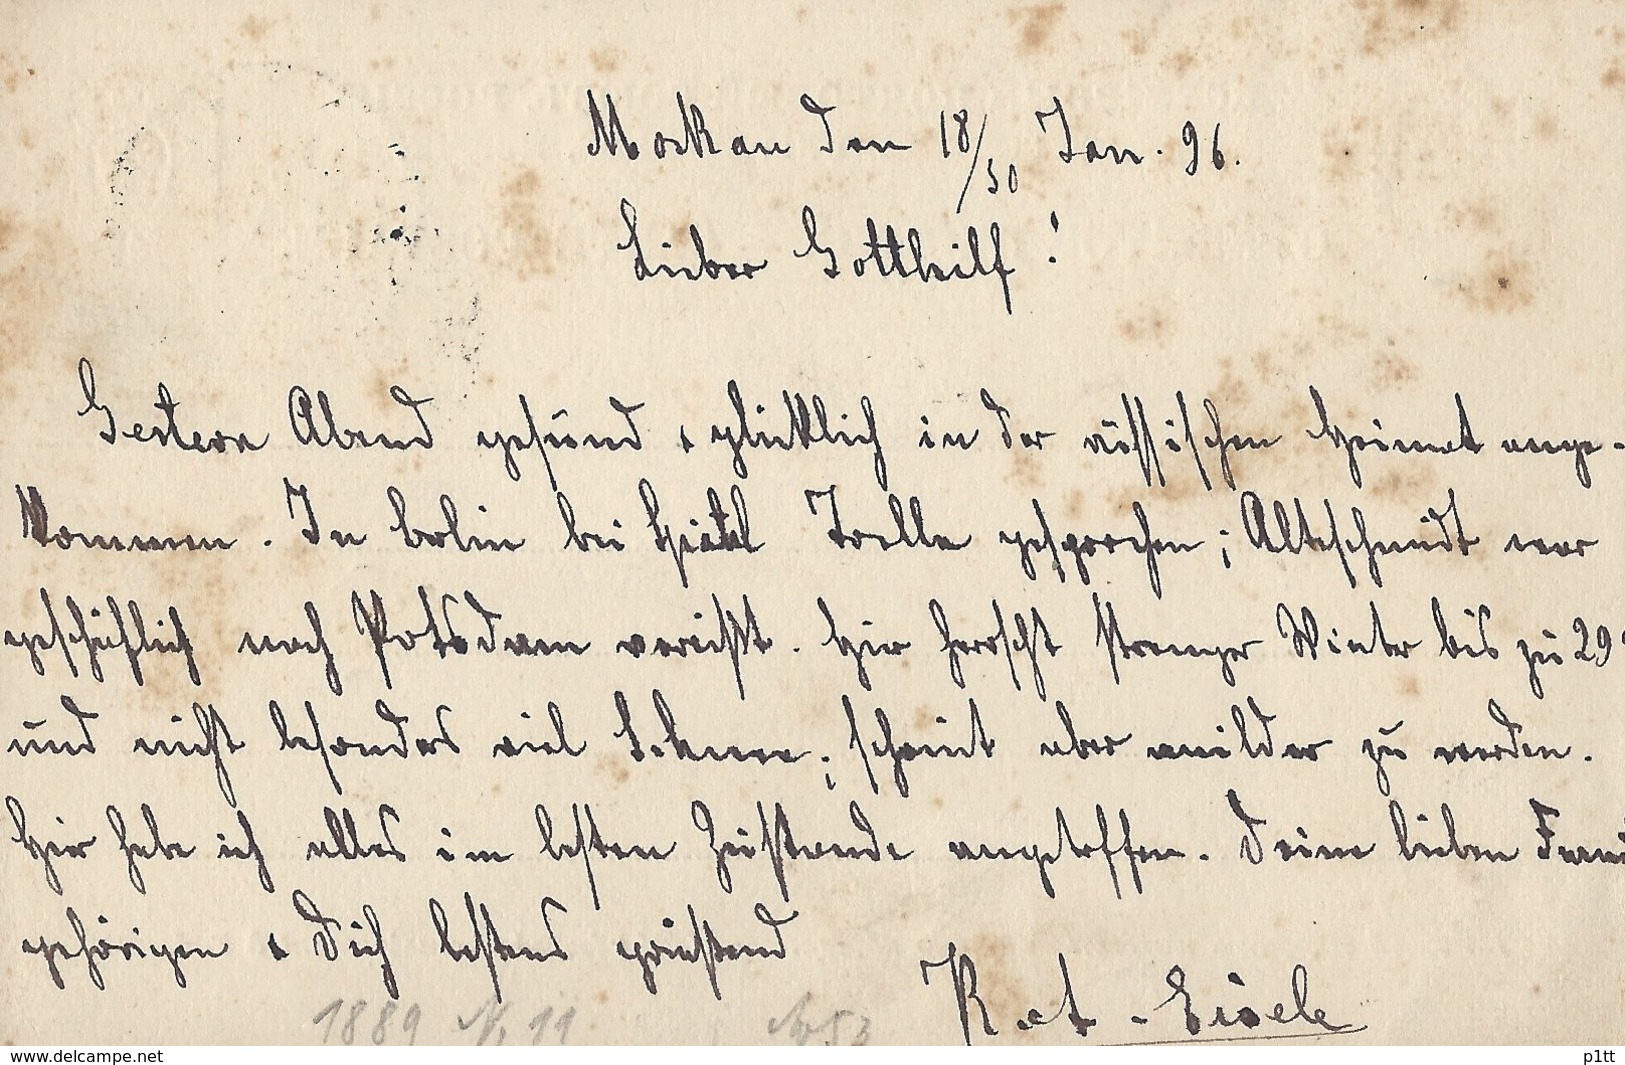 Moskau den 18/30 Jan. 96.
Lieber Gotthilf!
Gestern Abend gesund & glücklich in der russischen Heimat ange-
kommen. In Berlin bei Hiekel Trelle gesprochen; Alteschmidt war
geschäftlich nach Potsdam verreißt. Hier herrscht strenger Winter bis zu 29°
und nicht besonders viel Schnee; scheint aber milder zu werden.
Hier habe ich alles im besten Zustande angetroffen. Deine lieben Fami
gehörigen & Dich bestens grüßend
Rat-Eisele
1889 N. 11 53
www.delcampe.net p1tt